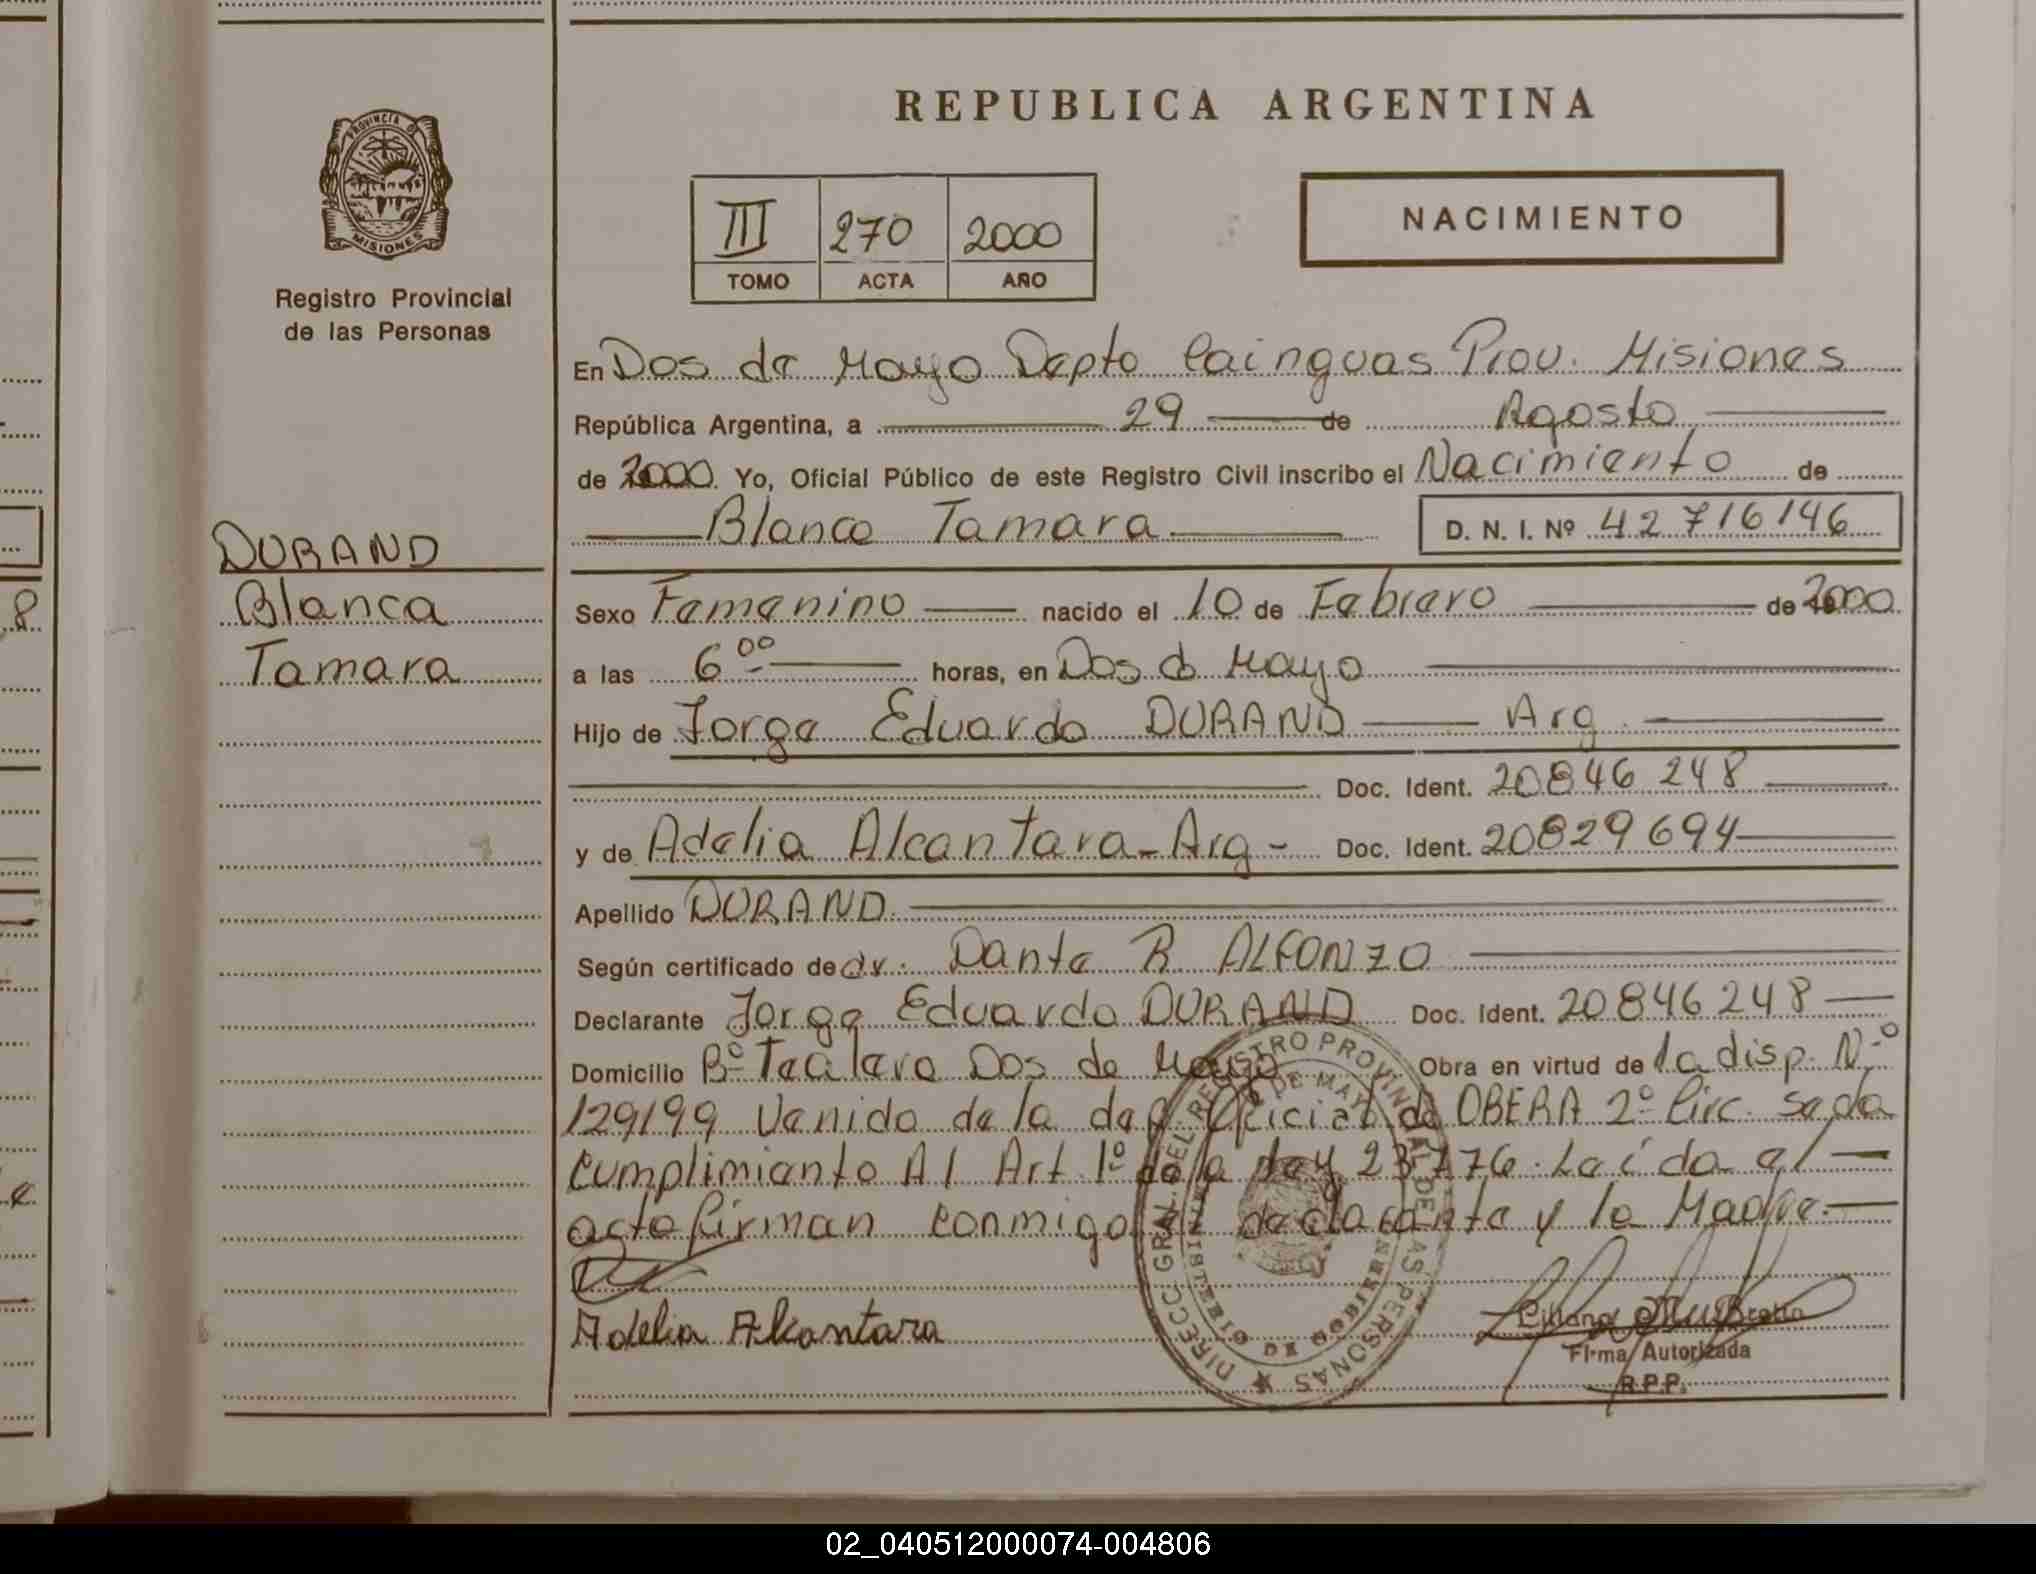 REPUBLICA ARGENTINA
PROVINCIA DE
MISIONES
III 270 2000
TOMO ACTA AÑO
NACIMIENTO
Registro Provincial
de las Personas
En Dos de Mayo Depto Cainguas Prov. Misiones
República Argentina, a 29 de Agosto
de 2000. Yo, Oficial Público de este Registro Civil inscribo el Nacimiento de
Blanca Tamara D. N. I. Nº 42716146
DURAND
Blanca
Tamara
Sexo Femenino nacido el 10 de Febrero de 2000
a las 6 00 horas, en Dos de Mayo
Hijo de Jorge Eduardo DURAND Arg.
Doc. Ident. 20846 248
y de Adelia Alcantara - Arg - Doc. Ident. 20829694
Apellido DURAND.
Según certificado de dr. Dante R ALFONZO
Declarante Jorge Eduardo DURAND Doc. Ident. 20846248
Domicilio Bº Tealera Dos de Mayo Obra en virtud de la disp. N.º
129/99 Venido de la del Oficial de OBERA 2º Circ. se da
cumplimiento Al Art. 1º de la ley 23776. Leída el
acto firman conmigo el declarante y la Madre.
Adelia Alcantara
DIRECC. GRAL. DEL REGISTRO PROVINCIAL DE LAS PERSONAS
DOS DE MAYO
MISIONES
Firma Autorizada
R.P.P.
02_040512000074-004806